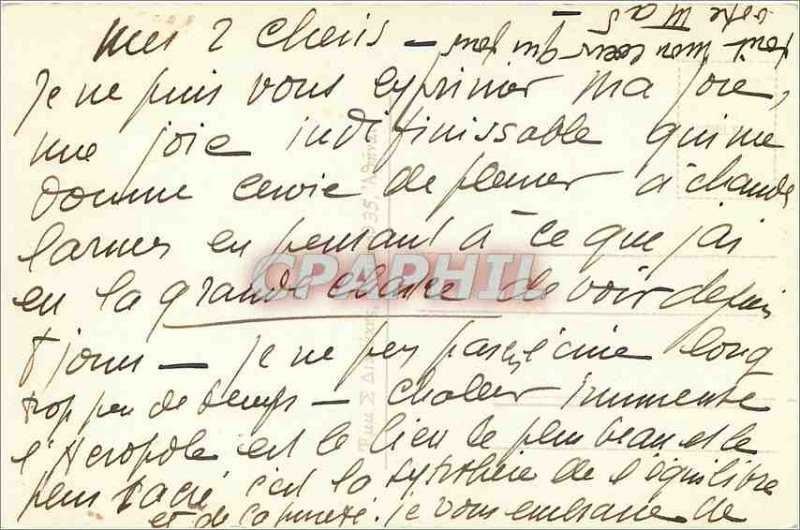 Mes 2 cheris –
Je ne puis vous exprimer ma joie,
une joie indéfinissable qui me
donne envie de pleurer à chaude
larmes en pensant à ce que j'ai
eu la grande chance de voir depuis
8 jours – je ne peux pas écrire long
trop peu de temps – chaleur immense
l'Acropole est le lieu le plus beau et le
plus sacré c'est la synthèse de l'équilibre
et de la pureté. je vous embrasse de
tout mon coeur qui
votre
CPAPHIL